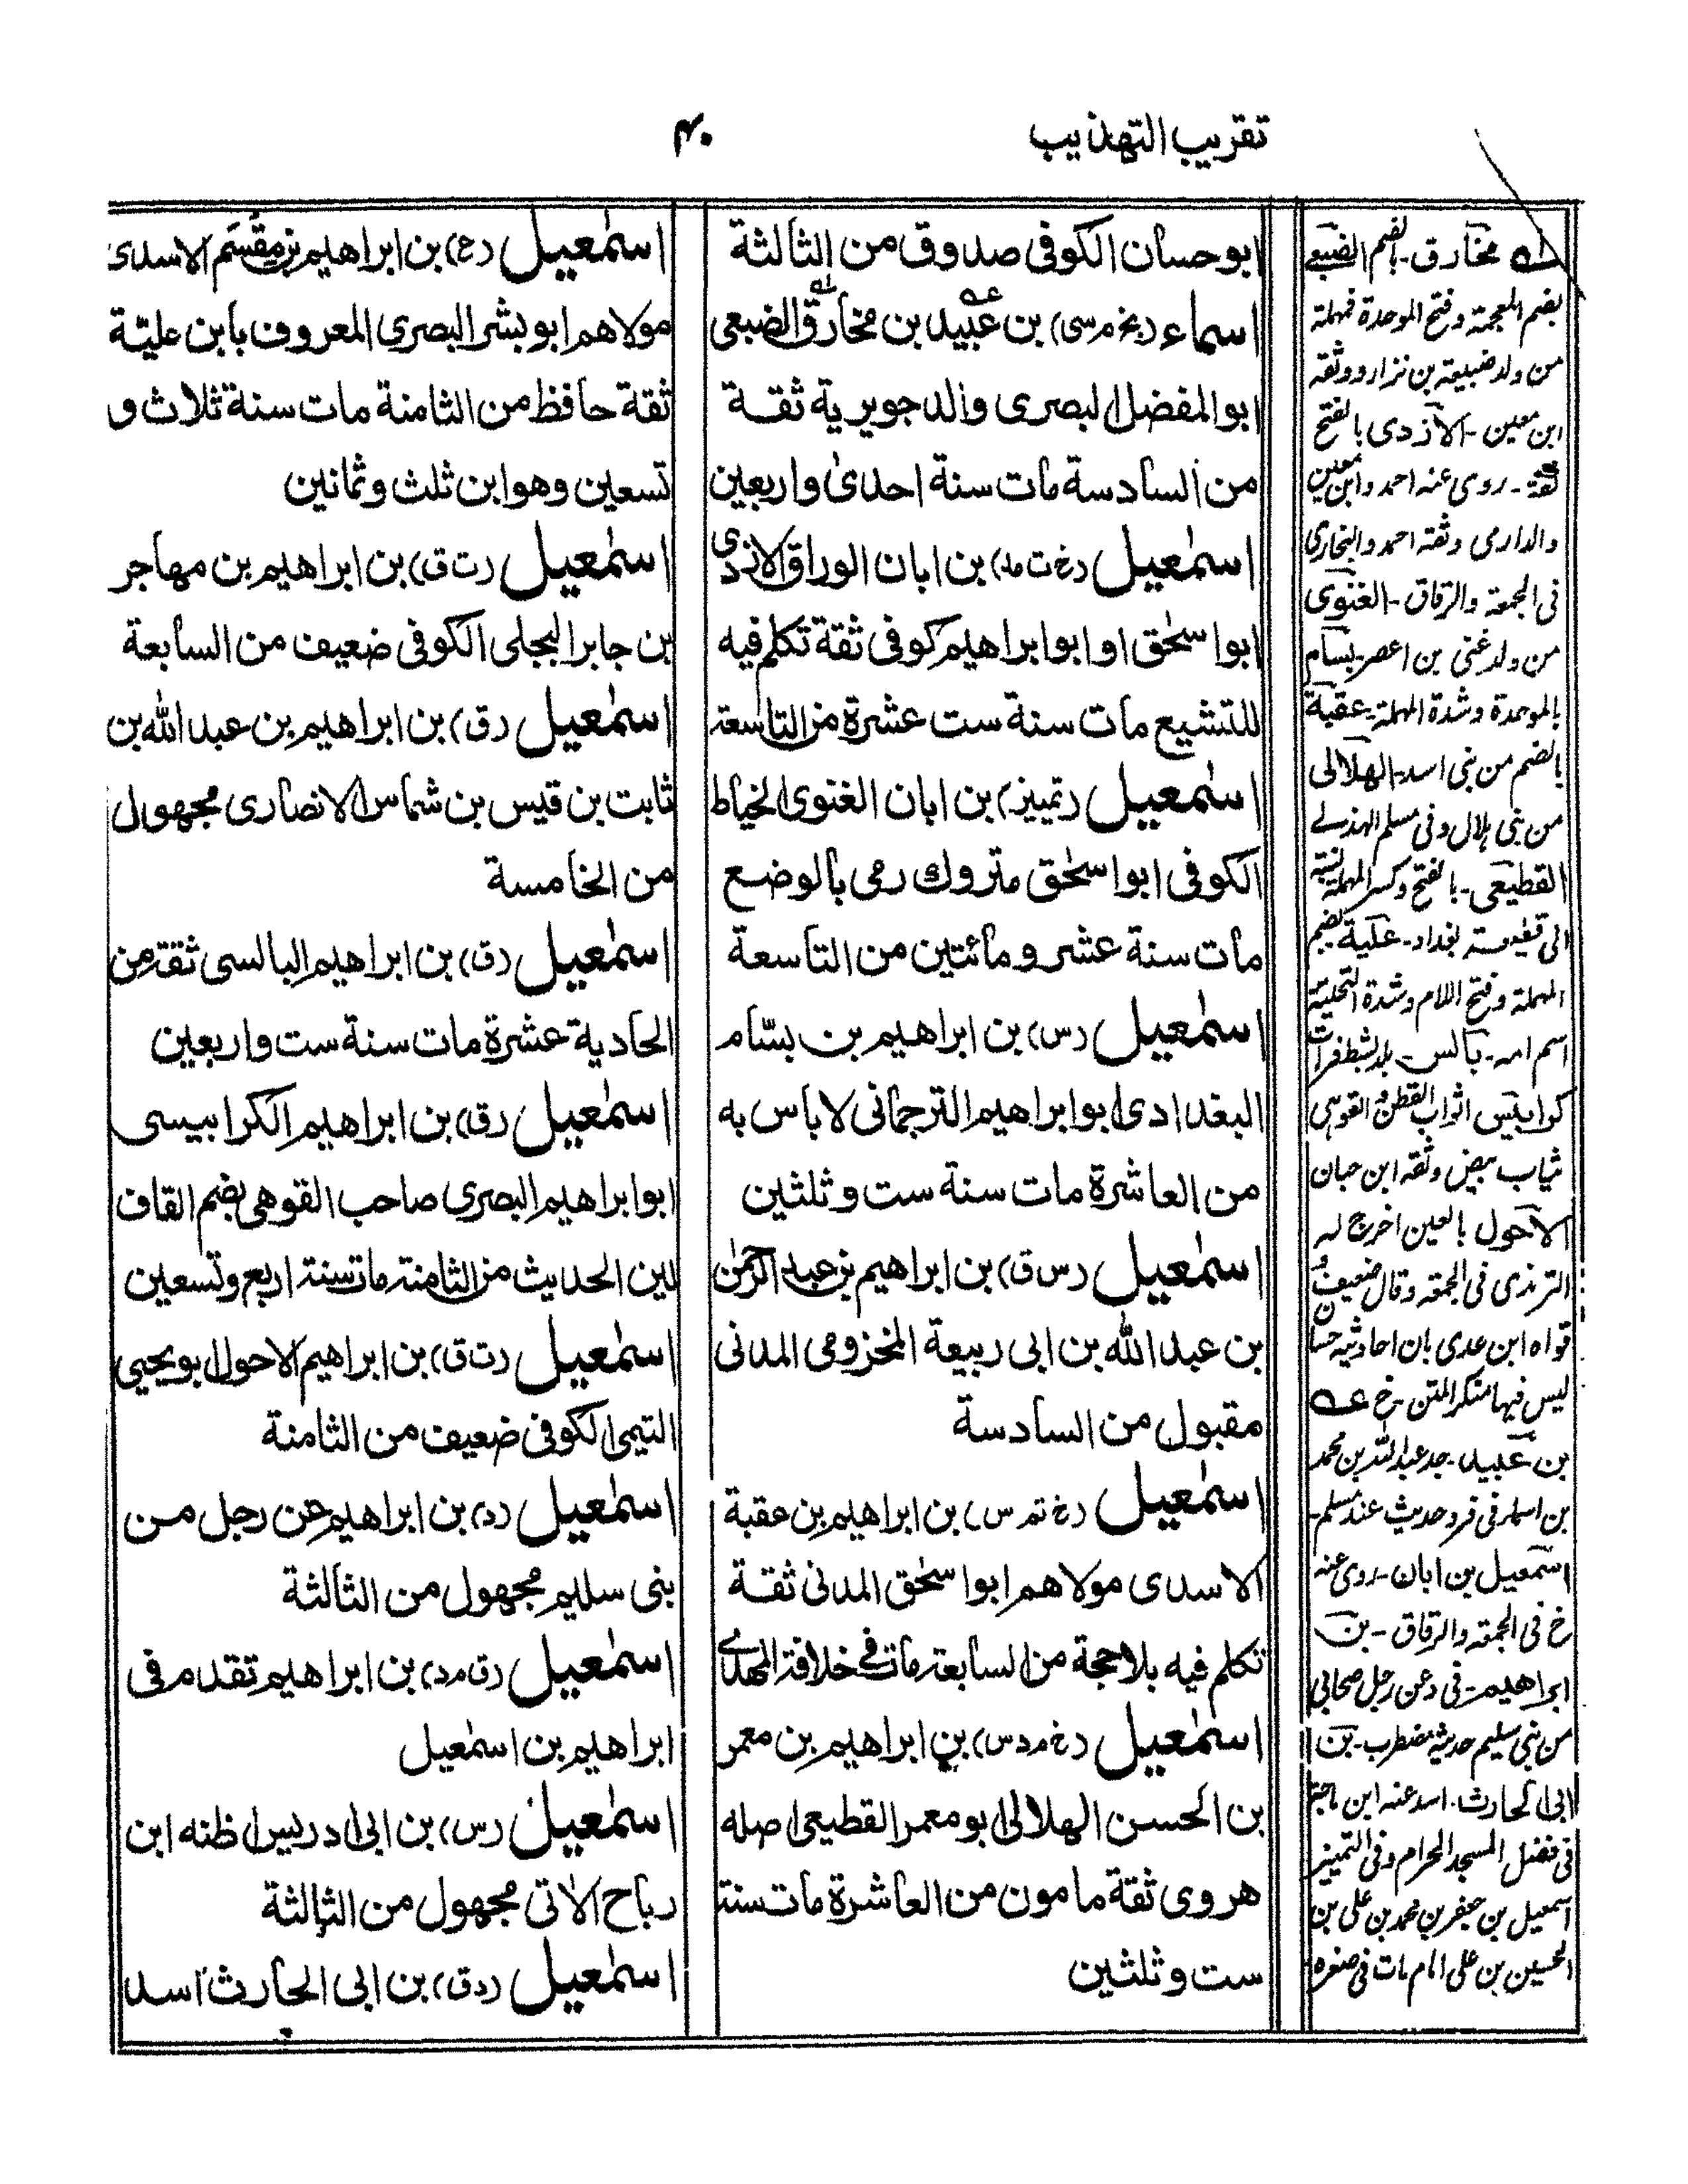 تقريب التهذيب
٤٠
ابو حسان الكوفى صدوق من الثالثة
اسماء (بخ م سى) بن عبيد بن مخارق الضبعى
ابو المفضل البصرى والد جويرية ثقة
من السادسة مات سنة احدى واربعين
اسمٰعيل (خ ت مد) بن ابان الوراق الازدى
ابو اسحٰق او ابو ابراهيم كوفى ثقة تكلم فيه
للتشيع مات سنة ست عشرة من التاسعة
اسمٰعيل (تمييز) بن ابان الغنوى الخياط
الكوفى ابو اسحٰق متروك رمى بالوضع
مات سنة عشر و مائتين من التاسعة
اسمٰعيل (س) بن ابراهيم بن بسّام
البغدادى ابو ابراهيم الترجمانى لا باس به
من العاشرة مات سنة ست و ثلثين
اسمٰعيل (س ق) بن ابراهيم بن عبد الرحمٰن
بن عبد الله بن ابى ربيعة المخزومى المدنى
مقبول من السادسة
اسمٰعيل (خ تم س) بن ابراهيم بن عقبة
الاسدى مولاهم ابو اسحٰق المدنى ثقة
تكلم فيه بلا حجة من السابعة مات فى خلافة المهدى
اسمٰعيل (خ م د س) بن ابراهيم بن معمر
بن الحسن الهلالى ابو معمر القطيعى اصله
هروى ثقة مامون من العاشرة مات سنة
ست و ثلثين
اسمٰعيل (ع) بن ابراهيم بن مقسم الاسدى
مولاهم ابو بشر البصرى المعروف بابن عليّة
ثقة حافظ من الثامنة مات سنة ثلاث و
تسعين وهو ابن ثلث و ثمانين
اسمٰعيل (ت ق) بن ابراهيم بن مهاجر
بن جابر البجلى الكوفى ضعيف من السابعة
اسمٰعيل (ق) بن ابراهيم بن عبد الله بن
ثابت بن قيس بن شماس الانصارى مجهول
من الخامسة
اسمٰعيل (ق) بن ابراهيم البالسى ثقة من
الحادية عشرة مات سنة ست واربعين
اسمٰعيل (ق) بن ابراهيم الكرابيسى
ابو ابراهيم البصرى صاحب القوهى بضم القاف
لين الحديث من الثامنة مات سنة اربع وتسعين
اسمٰعيل (ت ق) بن ابراهيم الاحول ابو يحيى
التيمى الكوفى ضعيف من الثامنة
اسمٰعيل (د) بن ابراهيم عن رجل من
بنى سليم مجهول من الثالثة
اسمٰعيل (ق مد) بن ابراهيم تقدم فى
ابراهيم بن اسمٰعيل
اسمٰعيل (س) بن ابى ادريس اظنه ابن
رباح الاتى مجهول من الثالثة
اسمٰعيل (د ق) بن ابى الحارث اسد
له مخارق - بالضم الضبعى
بضم المعجمة وفتح الموحدة فمهملة
من ولد ضبيعة بن نزار ووثقه
ابن معين - الازدى بالفتح
ثقة - روى عنه احمد وابن معين
والدارمى وثقه احمد والبخارى
فى الجمعة والرقاق - الغنوى
من ولد غنى بن اعصر - بسام
بالموحدة وشدة المهملة - عقبة
بالضم من بنى اسد - الهلالى
من بنى هلال وفى مسلم الهذلى
القطيعى - بالفتح وكسر المهملة نسبة
الى قطيعة بغداد - علية بضم
المهملة وفتح اللام وشدة التحتية
اسم امه - بالس بلد بشط فرات
كرابيس اثواب القطن و القوهى
ثياب بيض وثقه ابن حبان
الاحول بالعين اخرج له
الترمذى فى الجمعة وقال ضعيف و
قواه ابن عدى بان احاديثه حسان
ليس فيها منكر المتن - خ عه
بن عبيد - جد عبد الله بن محمد
بن اسماء فى فرد حديث عند مسلم -
اسمٰعيل بن ابان - روى عنه
خ فى الجمعة والرقاق - بن
ابراهيم - فى د عن رجل صحابى
من بنى سليم حديثه مضطرب - بن
ابى الحارث - اسد عنه ابن ماجة
فى فضل المسجد الحرام وفى التمييز
اسمعيل بن جعفر بن محمد بن على بن
الحسين بن على امام مات فى صغره